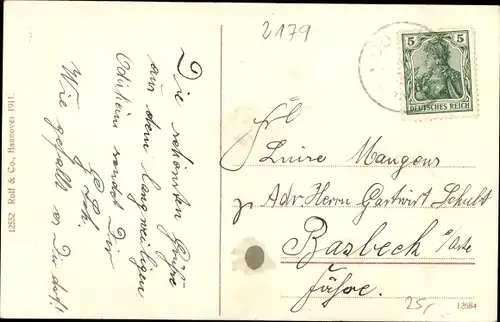 2179
Die schönsten Grüße
aus dem langweiligen
sendet Dir
Wie gefällt es Du dort!
12552 Rolf & Co., Hannover 1911.
5 5
DEUTSCHES REICH
Frl
Luise Mangens
Adr. Herrn Gastwirt Schult
Basbeck a/Oste
Fähre.
25,-
12684